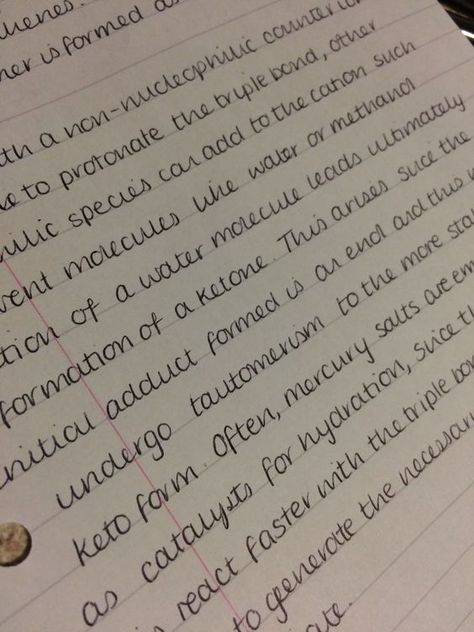 is formed as
a non-nucleophilic counter
to protonate the triple bond, other
species can add to the cation such
molecules like water or methanol
of a water molecule leads ultimately
formation of a ketone. This arises sice the
initial adduct formed is an enol and this
undergo tautomerism to the more
keto form. Often, mercury salts are
as catalysts for hydration, since
react faster with the triple
to generate the